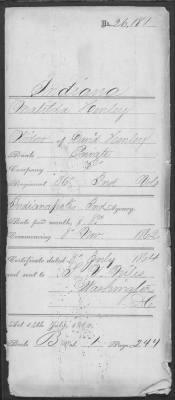 No. 26,181
Indiana
Matilda Henley
Widow of David Henley
Rank Private
Company
Regiment 36" Ind Vols
Indianapolis Ind Agency
Rate per month, $ 8"
Commencing 1" Nov 1862
Certificate dated July 1864
and sent to
Washington
D.C.
Act 14th July, 1862.
Book B Vol. 1 Page 244